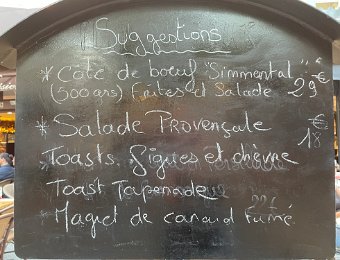 Suggestions
* Côte de boeuf "Simmental"
(500grs) Frites et Salade 29€
* Salade Provençale 18€
Toasts figues et chèvre
Toast Tapenade
* Magret de canard fumé